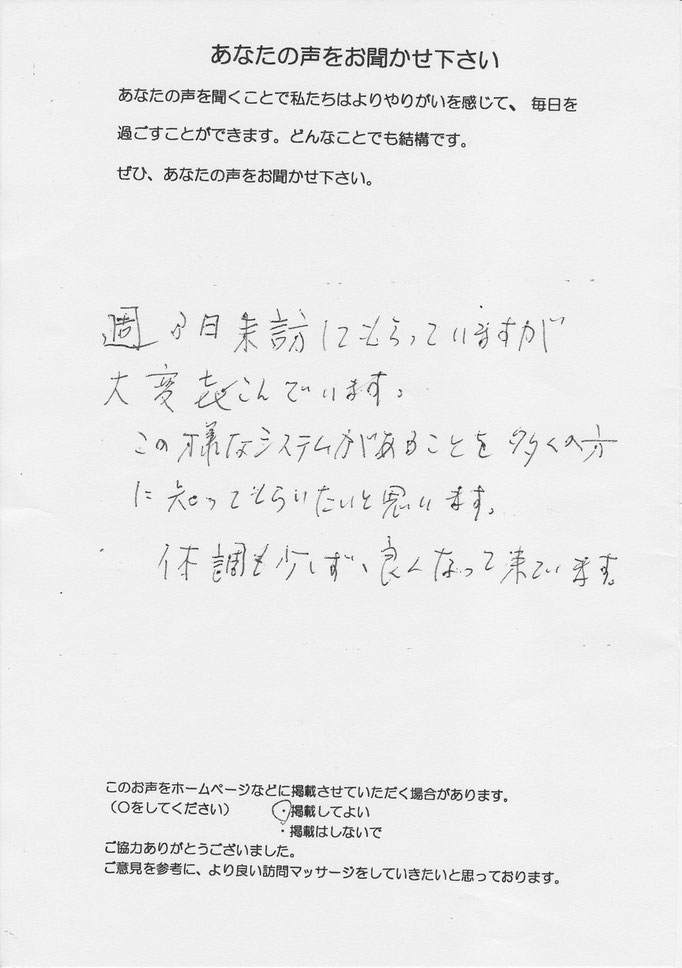 あなたの声をお聞かせ下さい
あなたの声を聞くことで私たちはよりやりがいを感じて、毎日を
過ごすことができます。どんなことでも結構です。
ぜひ、あなたの声をお聞かせ下さい。
週 日来訪してもらっていますが
大変喜こんでいます。
この様なシステムがあることを多くの方
に知ってもらいたいと思います。
体調も少しずつ良くなって来ています。
このお声をホームページなどに掲載させていただく場合があります。
（○をしてください） ・掲載してよい
・掲載はしないで
ご協力ありがとうございました。
ご意見を参考に、より良い訪問マッサージをしていきたいと思っております。